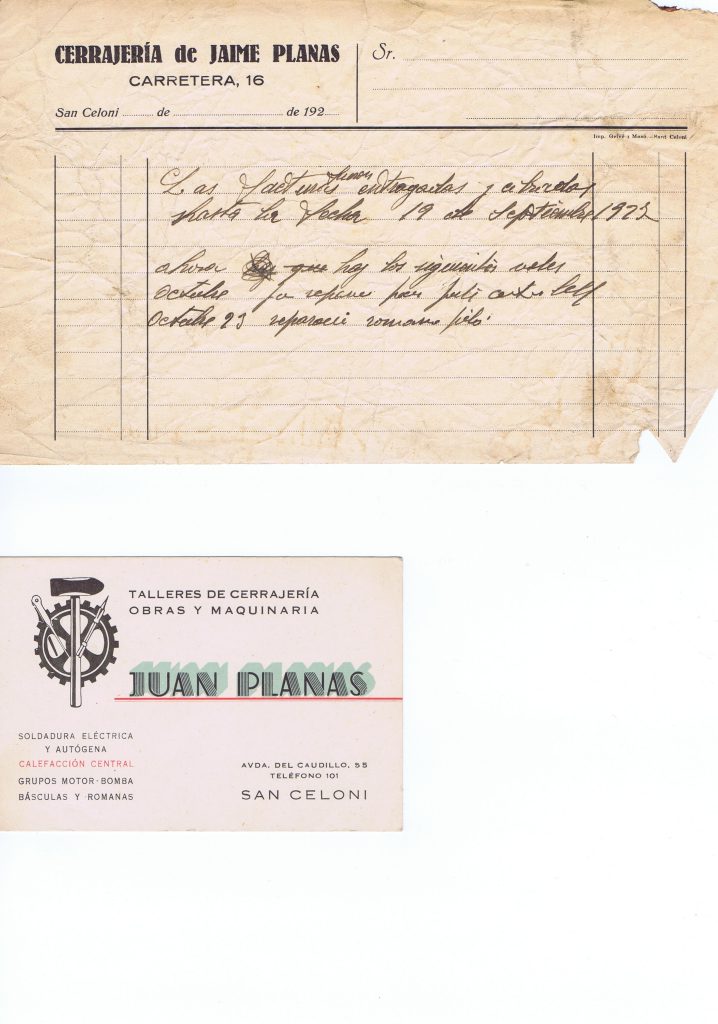 CERRAJERÍA de JAIME PLANAS
CARRETERA, 16
San Celoni de de 192
Sr.
Imp. Gelvé y Masó.-Sant Celoni
Las facturas fueron entregadas y cobradas
hasta la fecha 19 de Septiembre 1923
ahora que hay los siguientes vales
Octubre
Octubre 23 reparació romana piló
TALLERES DE CERRAJERÍA
OBRAS Y MAQUINARIA
JUAN PLANAS
SOLDADURA ELÉCTRICA
Y AUTÓGENA
CALEFACCIÓN CENTRAL
GRUPOS MOTOR-BOMBA
BÁSCULAS Y ROMANAS
AVDA. DEL CAUDILLO, 55
TELÉFONO 101
SAN CELONI